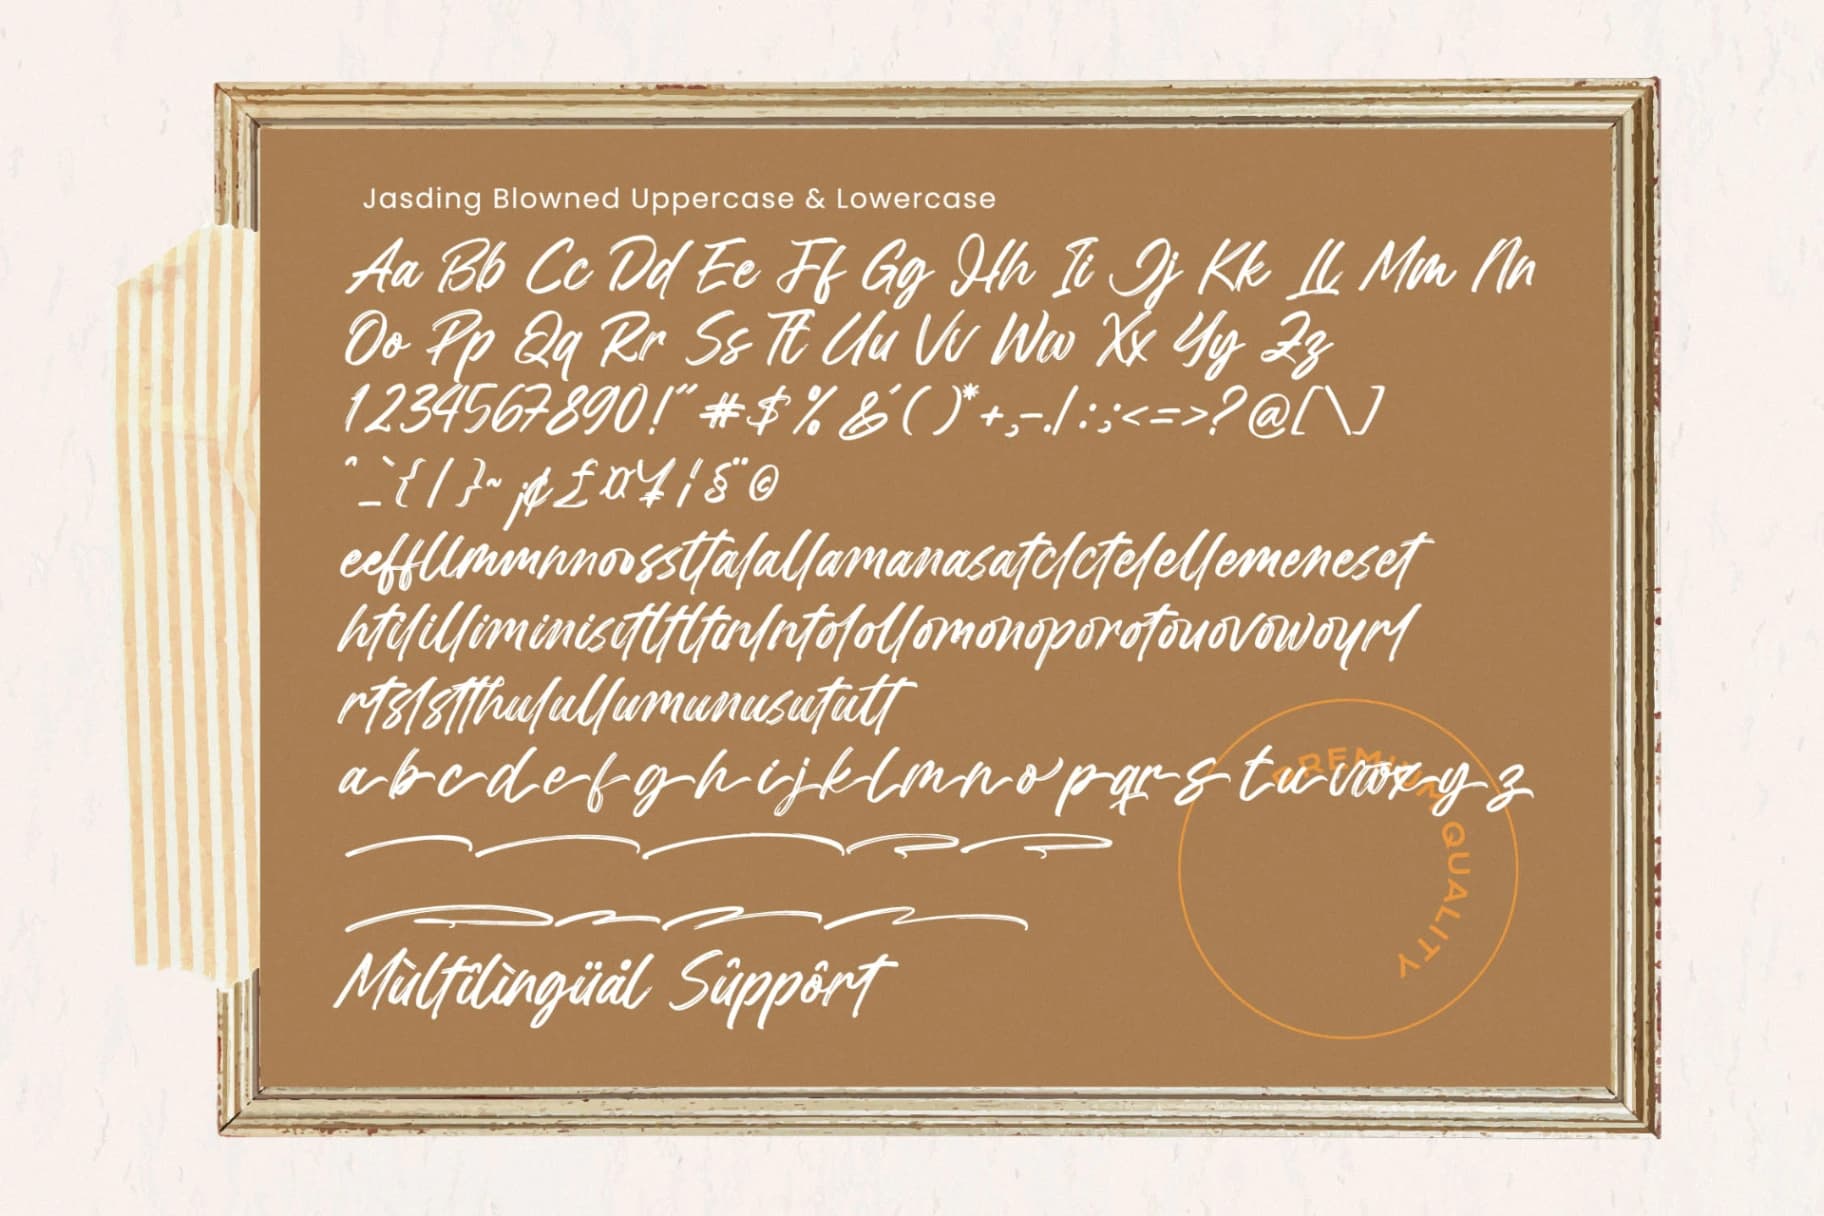 Jasding Blowned Uppercase & Lowercase
Aa Bb Cc Dd Ee Ff Gg Hh Ii Jj Kk Ll Mm Nn
Oo Pp Qq Rr Ss Tt Uu Vv Ww Xx Yy Zz
1234567890!"#$%&'()*+,-./:;<=>?@[\]
^_`{|}~¡¢£¤¥¦§¨©
eeffllmmnnoossttalallamanasatclctelellemeneset
htililliminisitltlttinlntolollomonoporotouovowoyrl
rtslstthulullumunusututt
a b c d e f g h i j k l m n o p q r s t u v w x y z
Mùltîlìngüål Sûppôrt
PREMIUM QUALITY